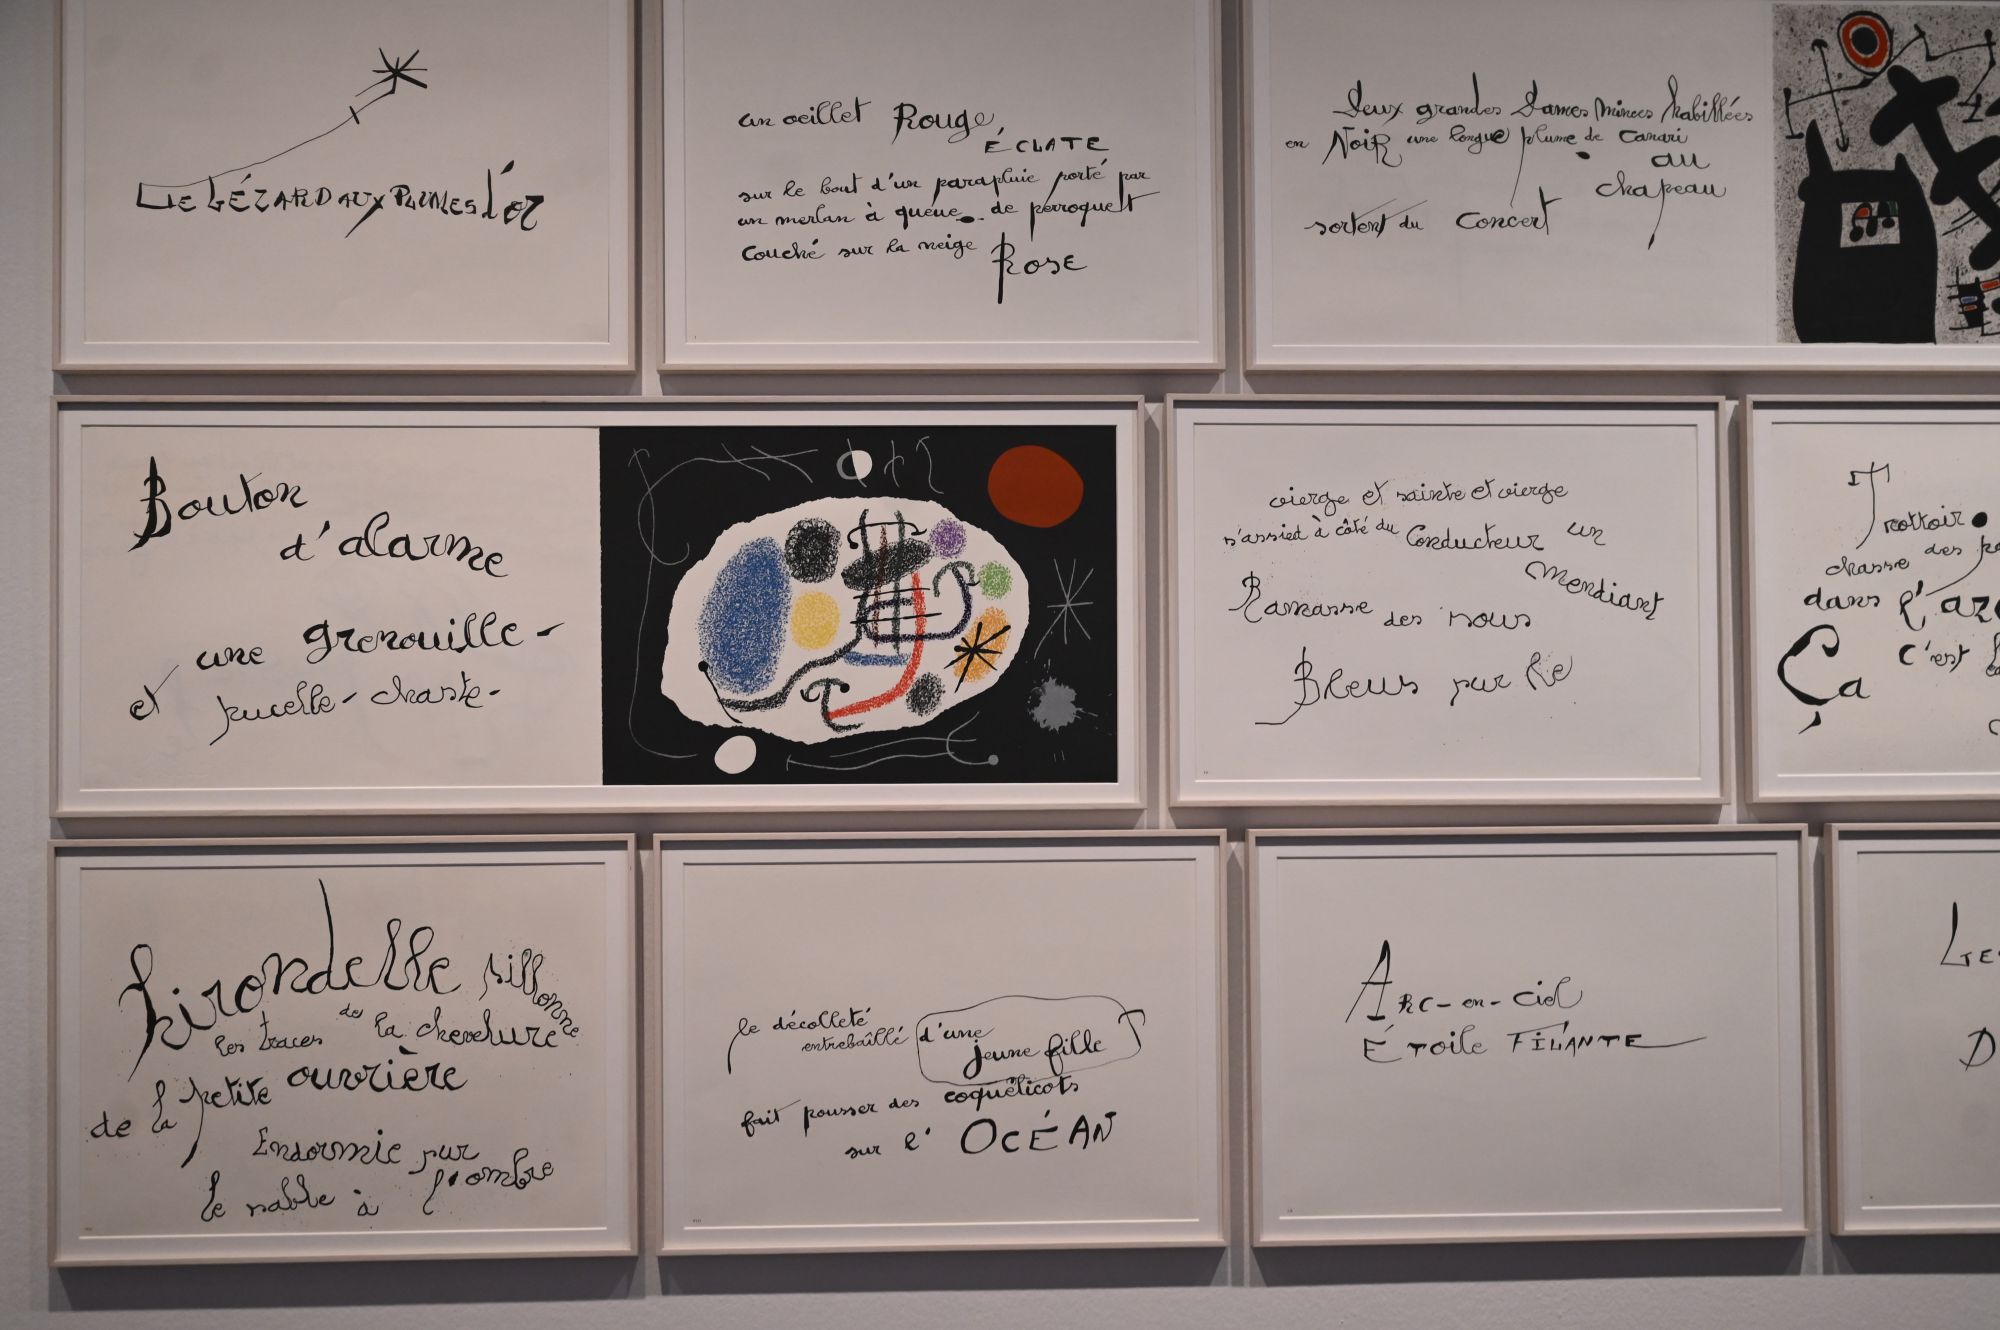 LE LÉZARD AUX PLUMES d'or
un oeillet Rouge
ÉCLATE
sur le bout d'un parapluie porté par
un merlan à queue de perroquet
couché sur la neige
Rose
deux grandes dames minces habillées
en NoiR une longue plume de canari
au
chapeau
sortent du concert
Bouton
d'alarme
une grenouille-
et pucelle-chaste-
vierge et sainte et vierge
s'assied à côté du Conducteur un
mendiant
Ramasse des sous
Bleus par le
Trottoir
chasse des
dans l'
Ça c'est
hirondelle sillonne
les traces de la chevelure
de la petite ouvrière
Endormie sur
le sable à l'ombre
le décolleté
entrebaîllé d'une
jeune fille
fait pousser des coquelicots
sur l' OCÉAN
ARC-en-ciel
Étoile FILANTE